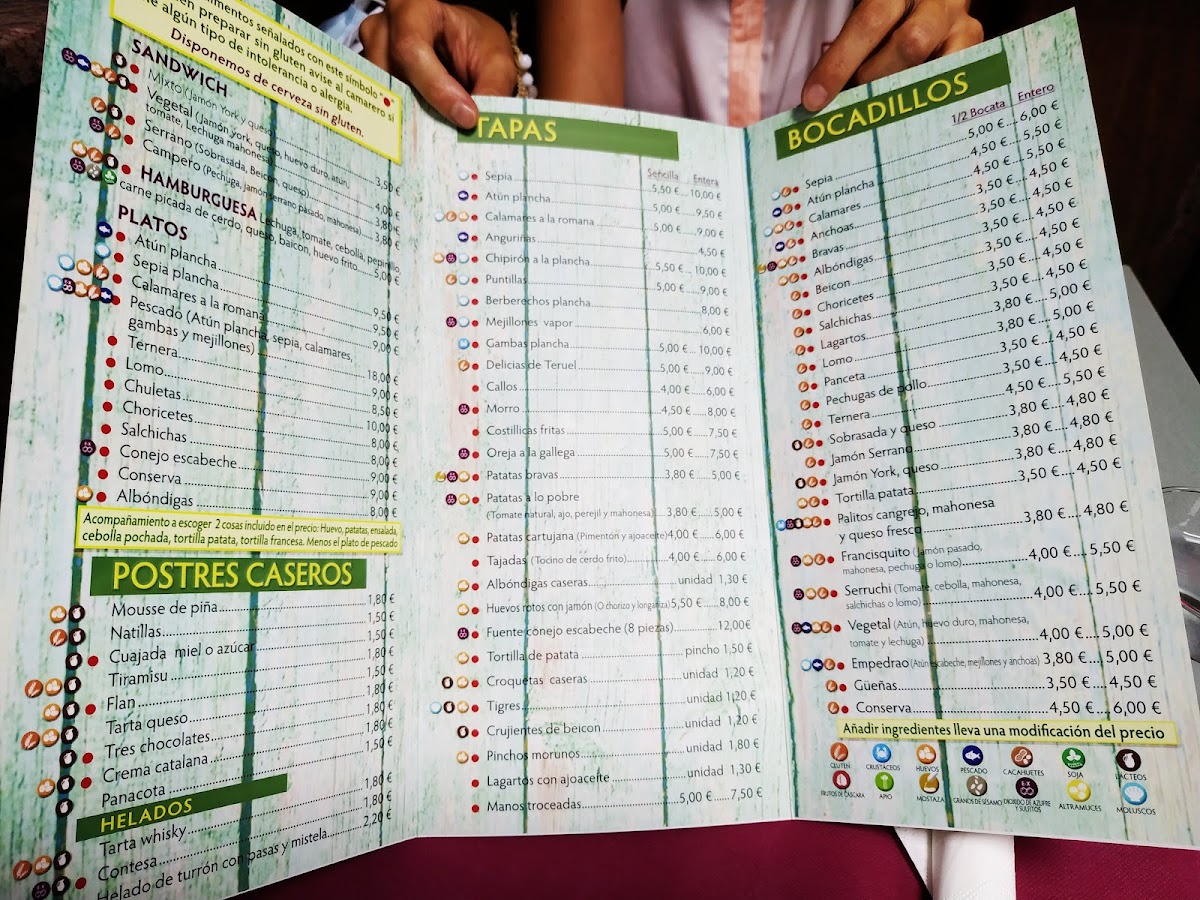 imentos señalados con este símbolo "●"
den preparar sin gluten avise al camarero si
ne algún tipo de intolerancia o alergia.
Disponemos de cerveza sin gluten.
SANDWICH
Mixto (Jamón York y queso) 3,50 €
Vegetal (Jamón york, queso, huevo duro, atún,
tomate, Lechuga mahonesa) 4,00 €
Serrano (Sobrasada, Beicon, queso) 3,80 €
Campero (Pechuga, jamón serrano pasado, mahonesa) 3,80 €
HAMBURGUESA Lechuga, tomate, cebolla, pepinillo,
carne picada de cerdo, queso, baicon, huevo frito 5,00 €
PLATOS
Atún plancha 9,50 €
Sepia plancha 9,50 €
Calamares a la romana 9,00 €
Pescado (Atún plancha, sepia, calamares,
gambas y mejillones) 18,00 €
Ternera 9,00 €
Lomo 8,50 €
Chuletas 10,00 €
Choricetes 8,00 €
Salchichas 8,00 €
Conejo escabeche 9,00 €
Conserva 9,00 €
Albóndigas 8,00 €
Acompañamiento a escoger 2 cosas incluido en el precio: Huevo, patatas, ensalada,
cebolla pochada, tortilla patata, tortilla francesa. Menos el plato de pescado
POSTRES CASEROS
Mousse de piña 1,80 €
Natillas 1,50 €
Cuajada miel o azúcar 1,50 €
Tiramisu 1,80 €
Flan 1,50 €
Tarta queso 1,80 €
Tres chocolates 1,80 €
Crema catalana 1,80 €
Panacota 1,50 €
HELADOS
Tarta whisky 1,80 €
Contesa 1,80 €
Helado de turrón con pasas y mistela 2,20 €
TAPAS
Sencilla Entera
Sepia 5,50 € 10,00 €
Atún plancha 5,00 € 9,50 €
Calamares a la romana 5,00 € 9,00 €
Anguriñas 4,50 €
Chipirón a la plancha 5,50 € 10,00 €
Puntillas 5,00 € 9,00 €
Berberechos plancha 8,00 €
Mejillones vapor 6,00 €
Gambas plancha 5,00 € 10,00 €
Delicias de Teruel 5,00 € 9,00 €
Callos 4,00 € 6,00 €
Morro 4,50 € 8,00 €
Costillicas fritas 5,00 € 7,50 €
Oreja a la gallega 5,00 € 7,50 €
Patatas bravas 3,80 € 5,00 €
Patatas a lo pobre
(Tomate natural, ajo, perejil y mahonesa) 3,80 € 5,00 €
Patatas cartujana (Pimentón y ajoaceite) 4,00 € 6,00 €
Tajadas (Tocino de cerdo frito) 4,00 € 6,00 €
Albóndigas caseras unidad 1,30 €
Huevos rotos con jamón (O chorizo y longaniza) 5,50 € 8,00 €
Fuente conejo escabeche (8 piezas) 12,00€
Tortilla de patata pincho 1,50 €
Croquetas caseras unidad 1,20 €
Tigres unidad 1,20 €
Crujientes de beicon unidad 1,20 €
Pinchos morunos unidad 1,80 €
Lagartos con ajoaceite unidad 1,30 €
Manos troceadas 5,00 € 7,50 €
BOCADILLOS
1/2 Bocata Entero
Sepia 5,00 € 6,00 €
Atún plancha 4,50 € 5,50 €
Calamares 4,50 € 5,50 €
Anchoas 3,50 € 4,50 €
Bravas 3,50 € 4,50 €
Albóndigas 3,50 € 4,50 €
Beicon 3,50 € 4,50 €
Choricetes 3,50 € 4,50 €
Salchichas 3,50 € 4,50 €
Lagartos 3,80 € 5,00 €
Lomo 3,80 € 5,00 €
Panceta 3,50 € 4,50 €
Pechugas de pollo 3,50 € 4,50 €
Ternera 4,50 € 5,50 €
Sobrasada y queso 3,80 € 4,80 €
Jamón Serrano 3,80 € 4,80 €
Jamón York, queso 3,80 € 4,80 €
Tortilla patata 3,50 € 4,50 €
Palitos cangrejo, mahonesa
y queso fresco 3,80 € 4,80 €
Francisquito (Jamón pasado,
mahonesa, pechuga o lomo) 4,00 € 5,50 €
Serruchi (Tomate, cebolla, mahonesa,
salchichas o lomo) 4,00 € 5,50 €
Vegetal (Atún, huevo duro, mahonesa,
tomate y lechuga) 4,00 € 5,00 €
Empedrao (Atún escabeche, mejillones y anchoas) 3,80 € 5,00 €
Güeñas 3,50 € 4,50 €
Conserva 4,50 € 6,00 €
Añadir ingredientes lleva una modificación del precio
GLUTEN CRUSTÁCEOS HUEVOS PESCADO CACAHUETES SOJA LÁCTEOS
FRUTOS DE CÁSCARA APIO MOSTAZA GRANOS DE SÉSAMO DIÓXIDO DE AZUFRE Y SULFITOS ALTRAMUCES MOLUSCOS